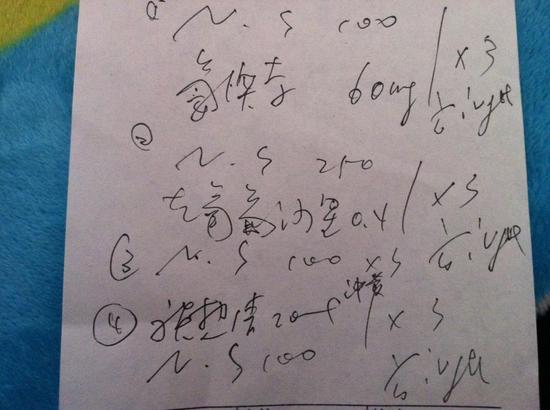 ① N.S 100
氨溴索 60mg / ×3
ivgtt
② N.S 250
左氧氟沙星 0.4 / ×3
ivgtt
③ N.S 100 ×3 冲管
④ 痰热清 20ml / ×3
N.S 100
ivgtt